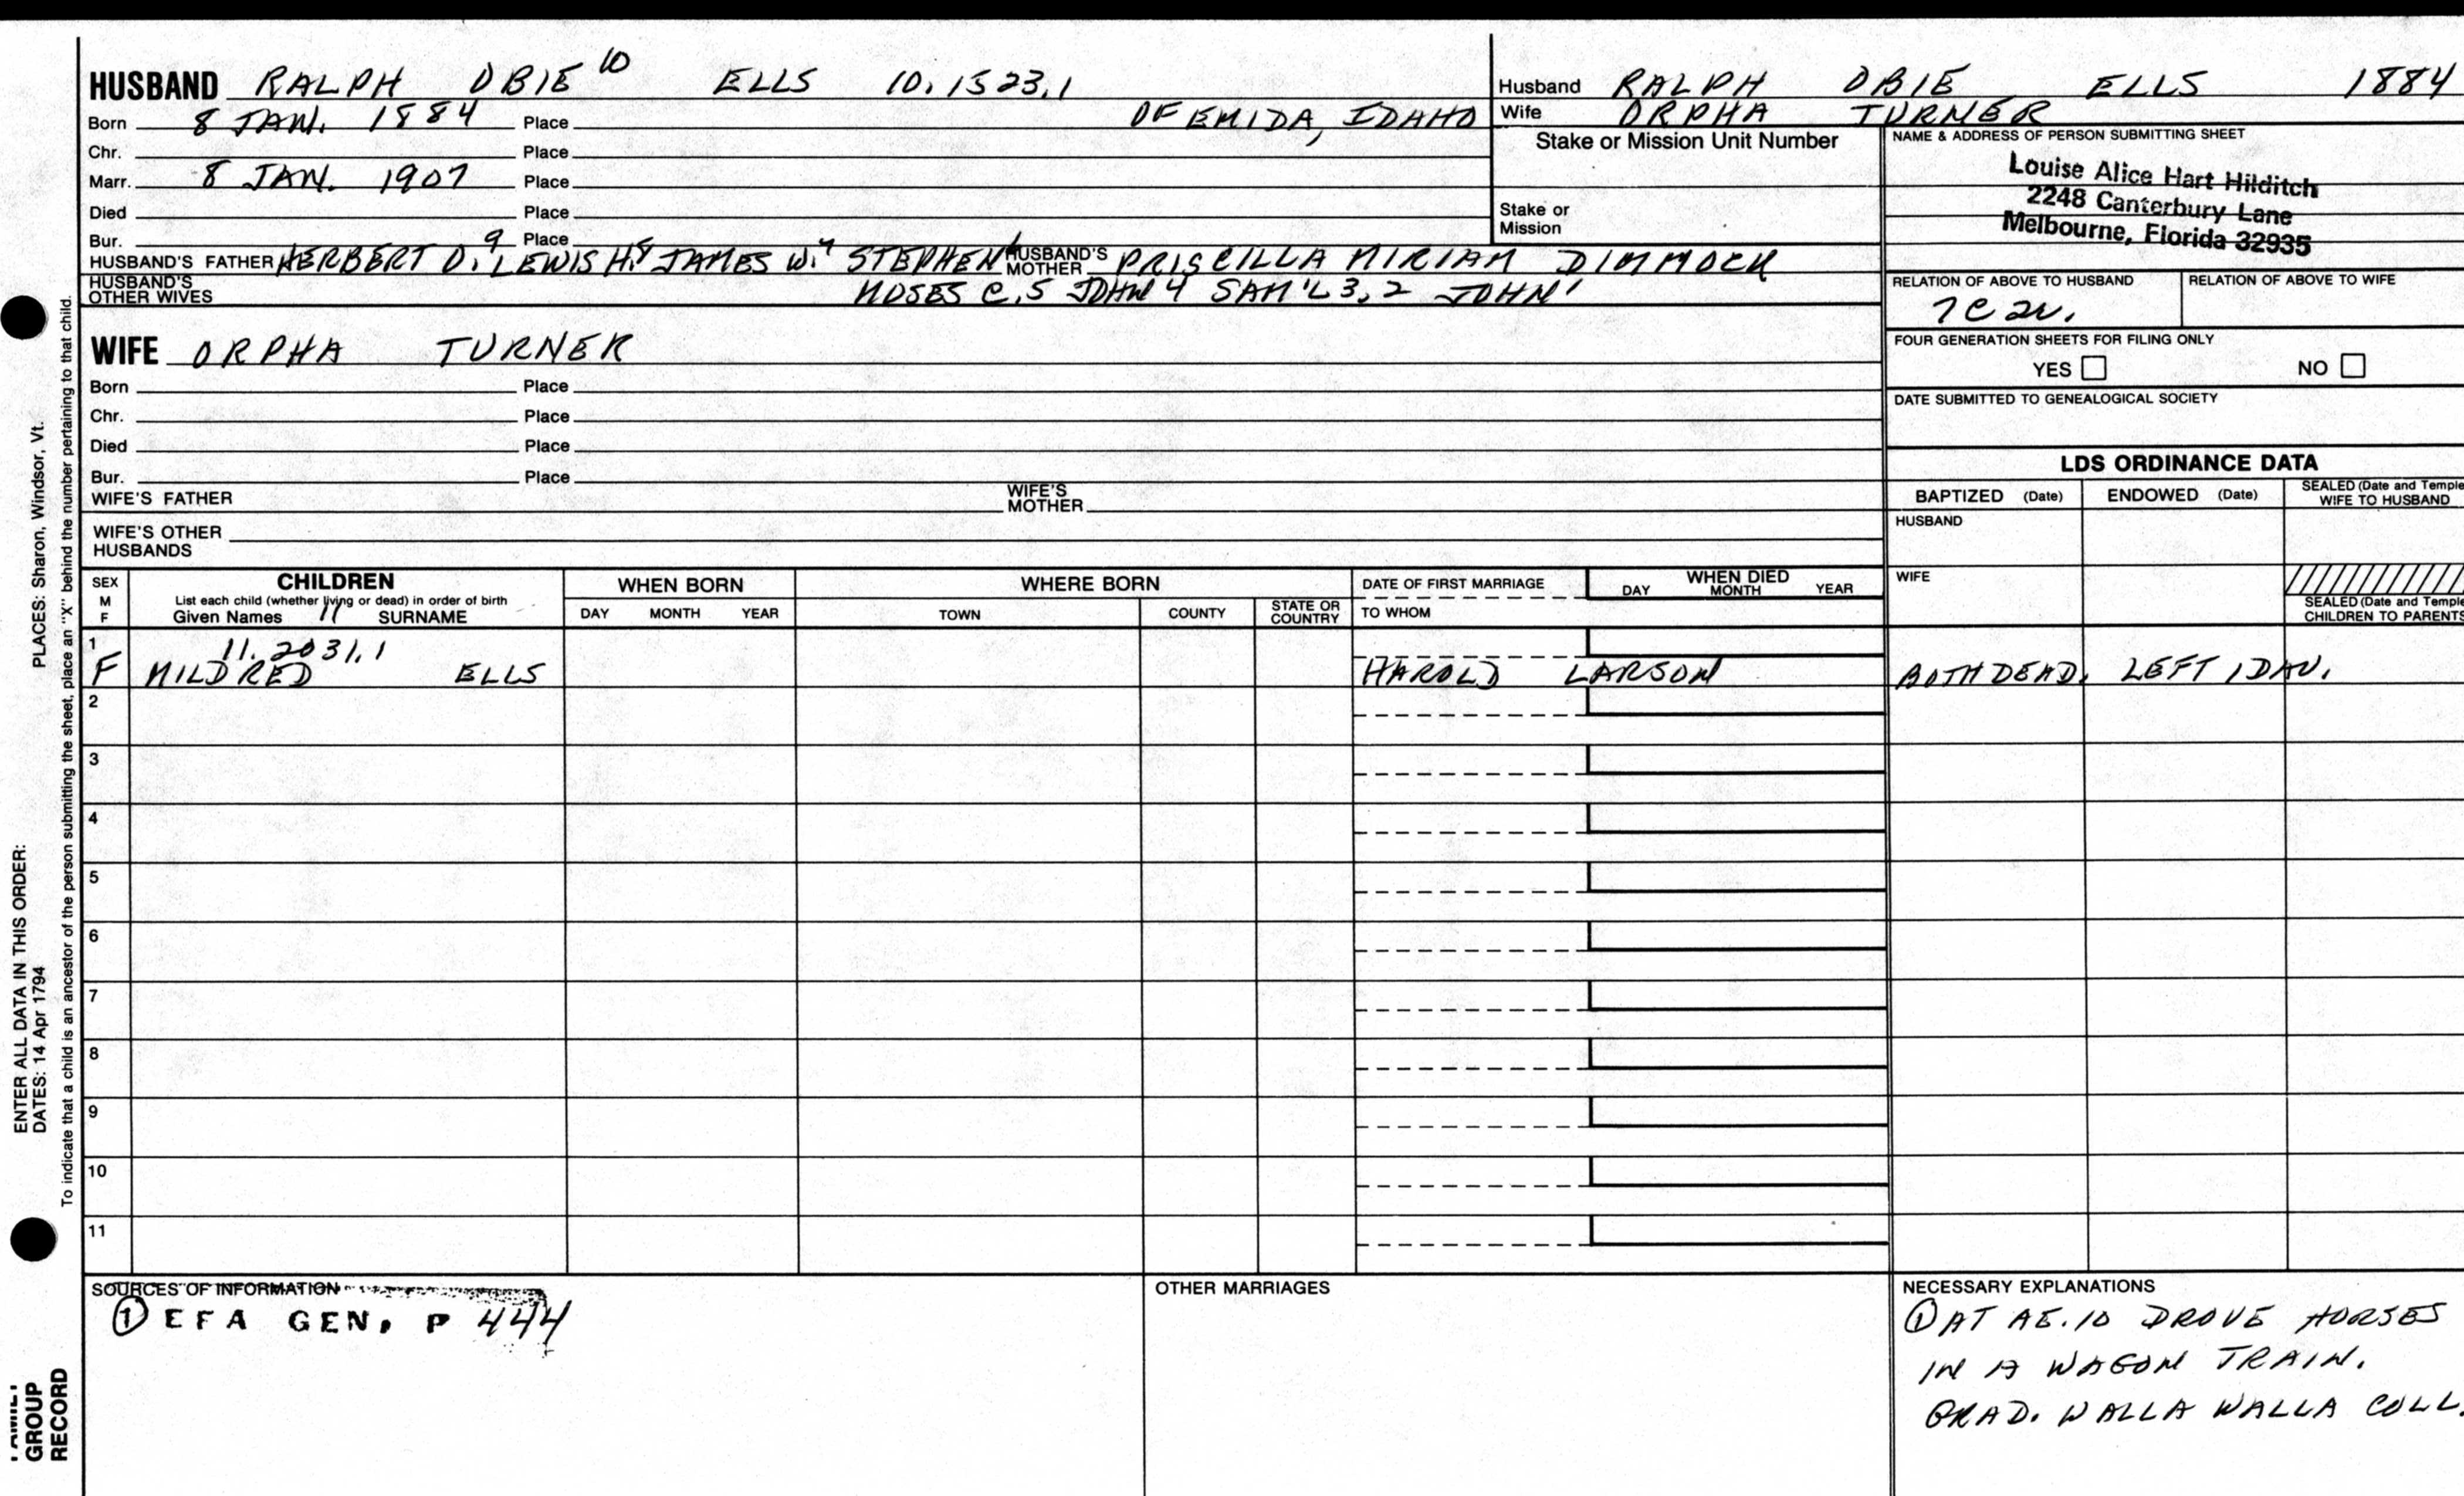 HUSBAND RALPH OBIE 10 ELLS 10.1523.1
Born 8 JAN. 1884 Place OF EMIDA, IDAHO
Chr. Place
Marr. 8 JAN. 1907 Place
Died Place
Bur. Place
HUSBAND'S FATHER HERBERT O.9 LEWIS H.8 JAMES W.7 STEPHEN HUSBAND'S MOTHER PRISCILLA MIRIAM DIMMOCK
HUSBAND'S OTHER WIVES MOSES C.5 JOHN 4 SAM'L 3,2 JOHN 1
Husband RALPH OBIE ELLS 1884
Wife ORPHA TURNER
Stake or Mission Unit Number
Stake or
Mission
NAME & ADDRESS OF PERSON SUBMITTING SHEET
Louise Alice Hart Hilditch
2248 Canterbury Lane
Melbourne, Florida 32935
RELATION OF ABOVE TO HUSBAND RELATION OF ABOVE TO WIFE
7C2r.
FOUR GENERATION SHEETS FOR FILING ONLY
YES NO
DATE SUBMITTED TO GENEALOGICAL SOCIETY
WIFE ORPHA TURNER
Born Place
Chr. Place
Died Place
Bur. Place
WIFE'S FATHER WIFE'S MOTHER
WIFE'S OTHER
HUSBANDS
LDS ORDINANCE DATA
BAPTIZED (Date) ENDOWED (Date) SEALED (Date and Temple
WIFE TO HUSBAND
HUSBAND
WIFE
SEALED (Date and Temple
CHILDREN TO PARENTS
SEX
M
F
CHILDREN
List each child (whether living or dead) in order of birth
Given Names 11 SURNAME
WHEN BORN
DAY MONTH YEAR
WHERE BORN
TOWN COUNTY STATE OR COUNTRY
DATE OF FIRST MARRIAGE
TO WHOM
WHEN DIED
DAY MONTH YEAR
1 11.2031.1
F MILDRED ELLS HAROLD LARSON BOTH DEAD. LEFT 1 DAU.
2
3
4
5
6
7
8
9
10
11
SOURCES OF INFORMATION
① EFA GEN. P 444
OTHER MARRIAGES
NECESSARY EXPLANATIONS
① AT AE.10 DROVE HORSES
IN A WAGON TRAIN.
GRAD. WALLA WALLA COLL.
PLACES: Sharon, Windsor, Vt.
ENTER ALL DATA IN THIS ORDER:
DATES: 14 Apr 1794
To indicate that a child is an ancestor of the person submitting the sheet, place an "X" behind the number pertaining to that child.
FAMILY
GROUP
RECORD